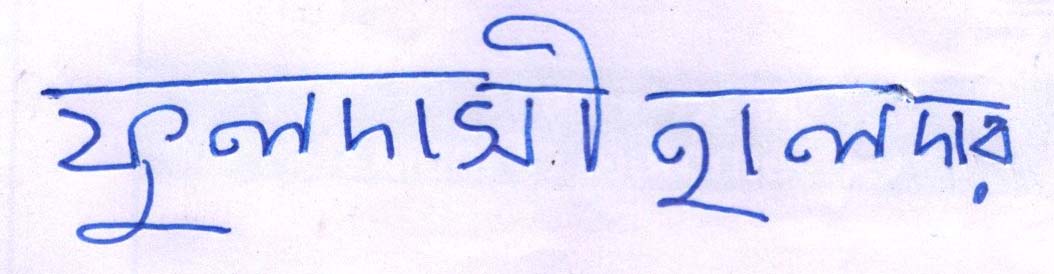 ফুলদাসী হালদার